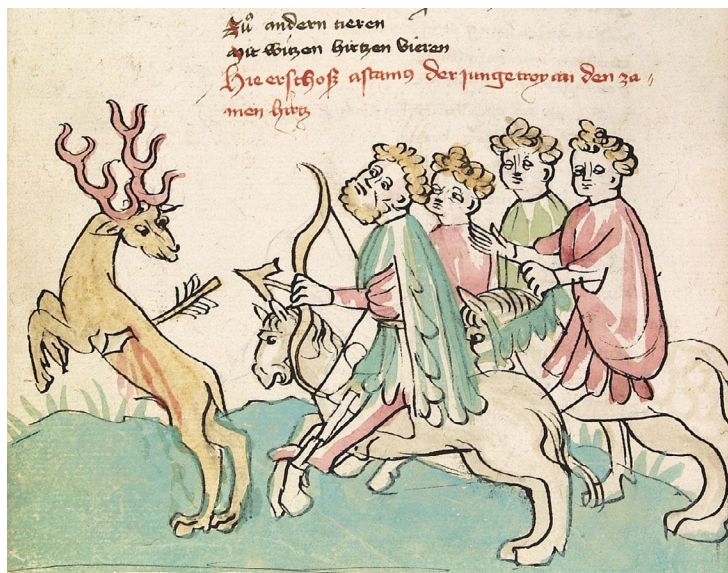 Zuͦ andern tieren
Mit witzen hirtzen vieren
Hie erschoß astanius der junge troyan den za-
men hirtz